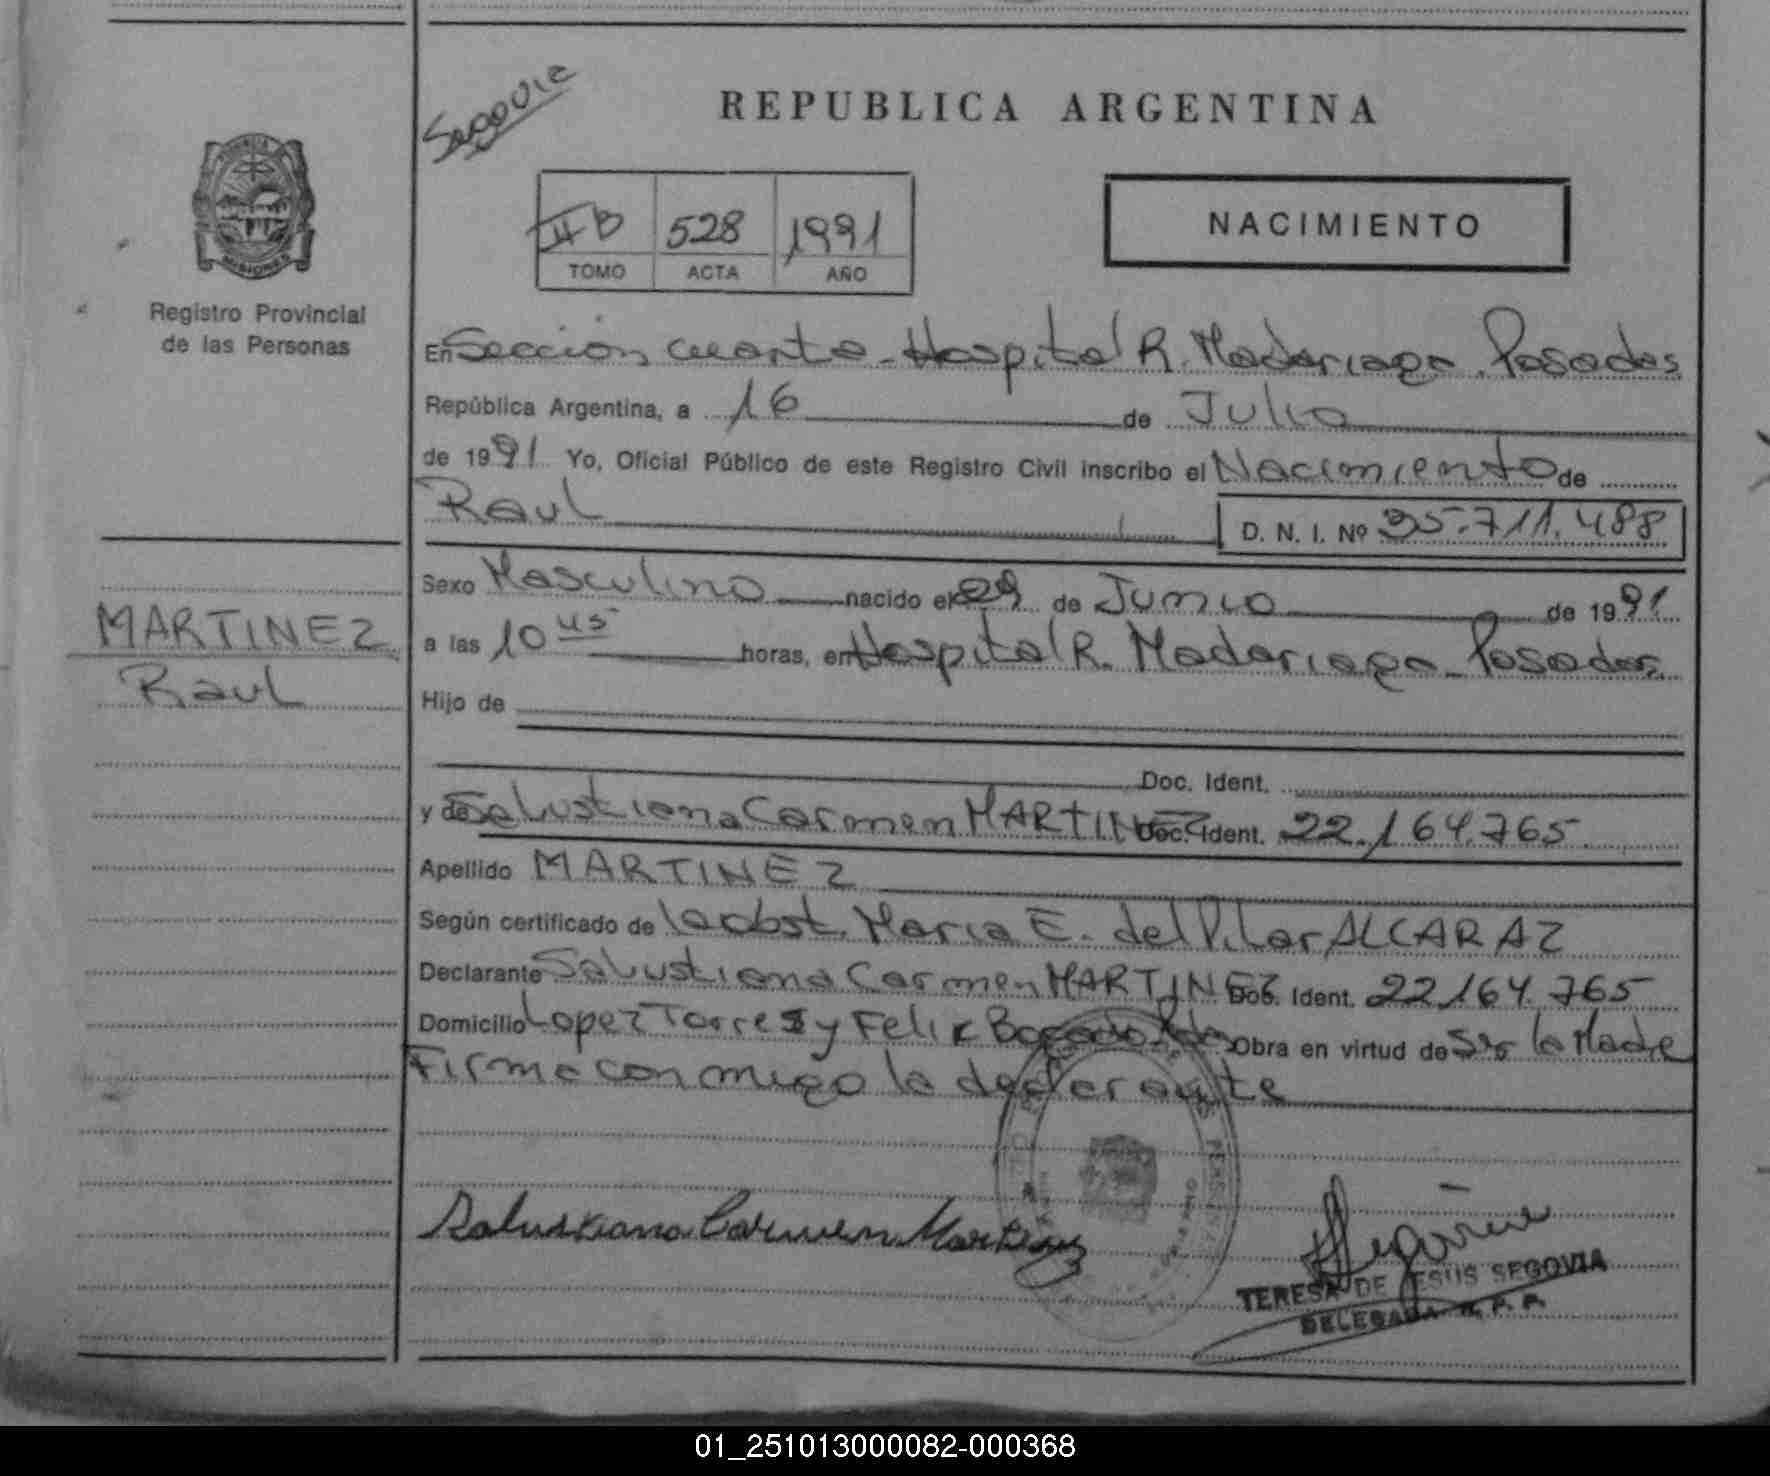 Segovia
REPUBLICA ARGENTINA
IIB 528 1991
TOMO ACTA AÑO
NACIMIENTO
MISIONES
Registro Provincial
de las Personas
En Sección cuarta - Hospital R. Madariaga. Posadas
República Argentina, a 16 de Julio
de 1991 Yo, Oficial Público de este Registro Civil inscribo el Nacimiento de
Raul D. N. I. Nº 35.711.488
MARTINEZ
Raul
Sexo Masculino nacido el 29 de Junio de 1991
a las 10 45 horas, en Hospital R. Madariaga - Posadas
Hijo de
Doc. Ident.
y de Salustiana Carmen MARTINEZ Doc. Ident. 22.164.765
Apellido MARTINEZ
Según certificado de la obst. Maria E. del Pilar ALCARAZ
Declarante Salustiana Carmen MARTINEZ Doc. Ident. 22.164.765
Domicilio Lopez Torres y Felix Bogado Pdas Obra en virtud de Ser la Madre
Firma conmigo la declarante
Salustiana Carmen Martinez
TERESA DE JESUS SEGOVIA
DELEGADA R. P. P.
01_251013000082-000368